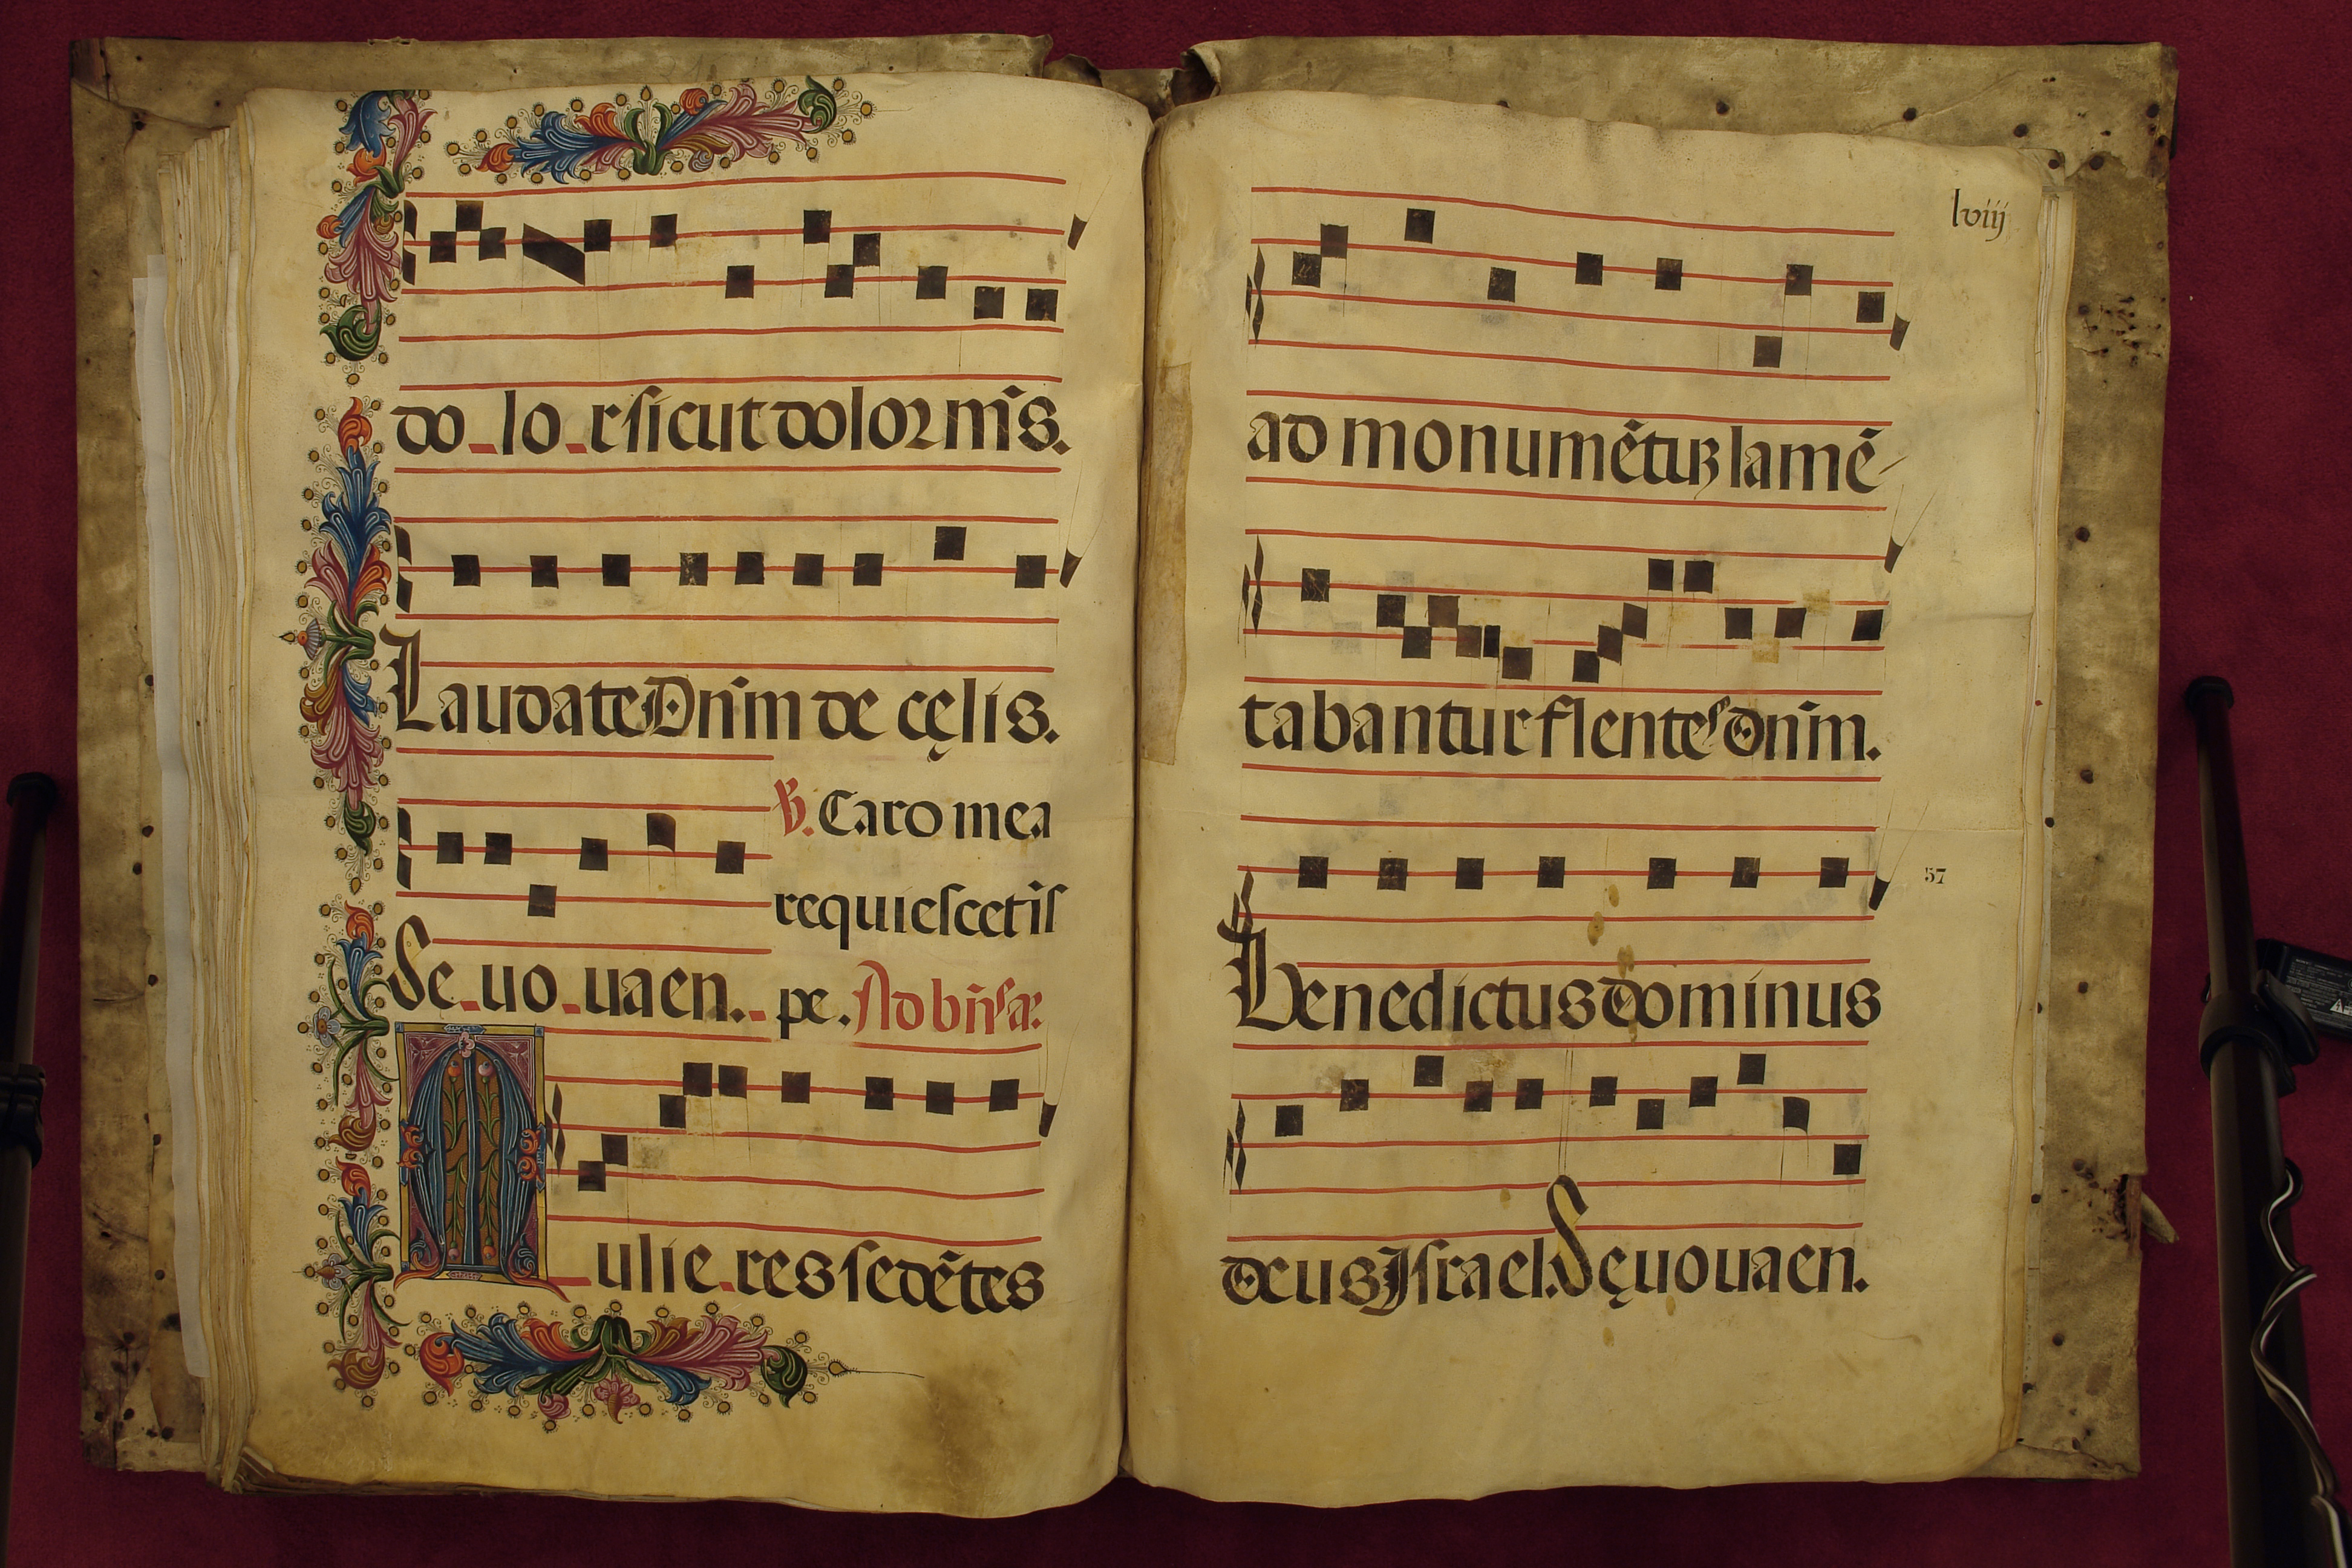 do lo r sicut dolor m̃s.
Laudate Dñm de cęlis.
℣. Caro mea
requiescet ĩ s
Se uo uaen. pe. Ad bñs̃ añ:
Mulie res sedẽtes
lviij
ad monumẽtuꝫ lamẽ
tabantur flentes dñm.
57
Benedictus dominus
deus Israel. Sęuouaen.